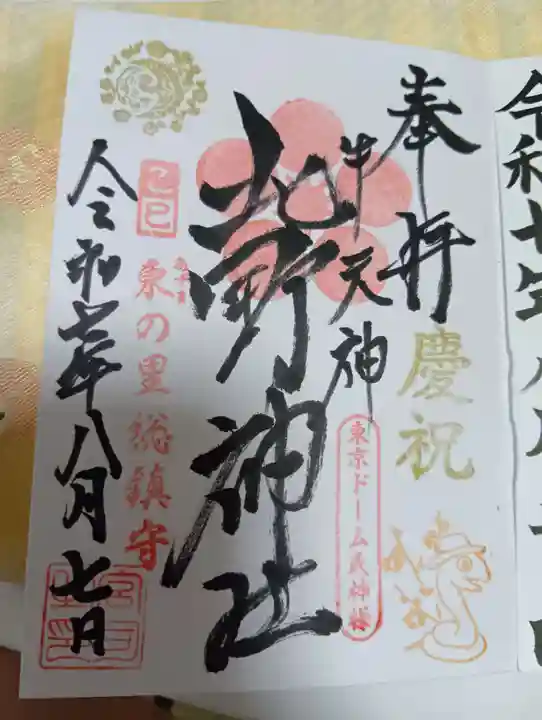 奉拝
慶祝
牛天神
東京ドーム氏神様
北野神社
東の里総鎮守
令和七年八月七日